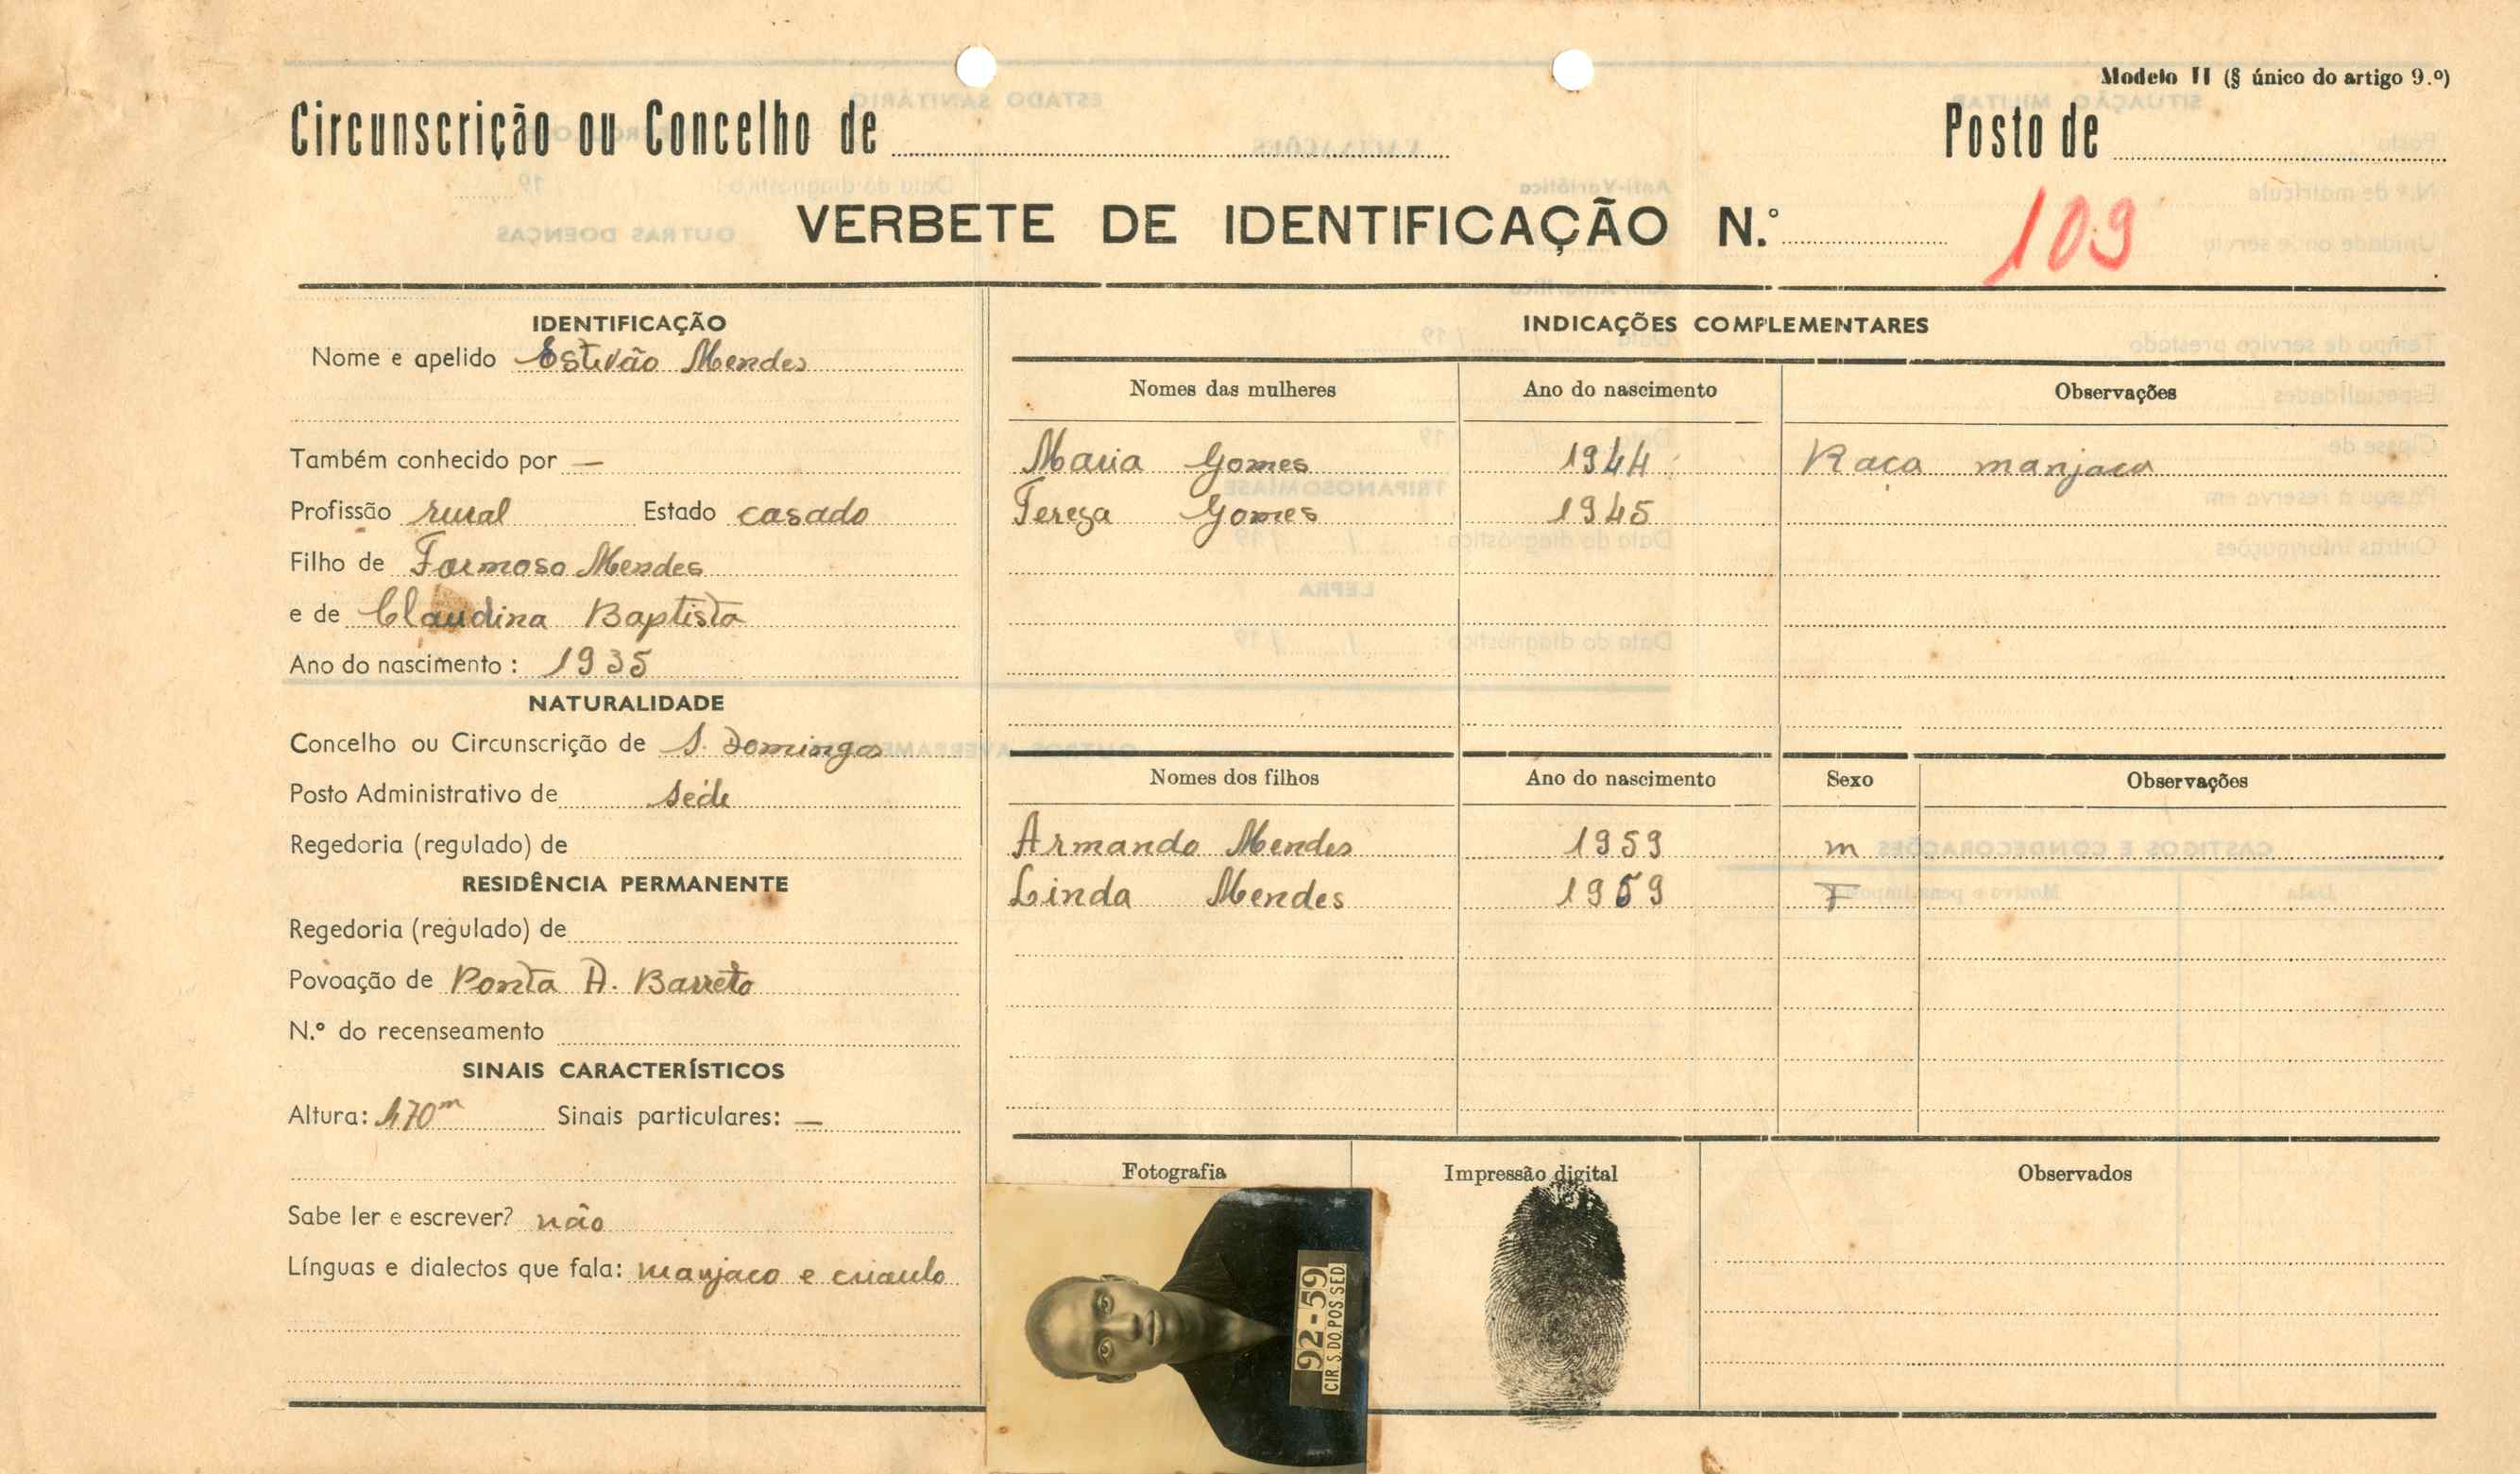 Modelo II (§ único do artigo 9.º)
Circunscrição ou Concelho de
Posto de
VERBETE DE IDENTIFICAÇÃO N.º 109
IDENTIFICAÇÃO
Nome e apelido Estevão Mendes
Também conhecido por —
Profissão rural Estado casado
Filho de Formoso Mendes
e de Claudina Baptista
Ano do nascimento: 1935
NATURALIDADE
Concelho ou Circunscrição de S. Domingos
Posto Administrativo de Séde
Regedoria (regulado) de
RESIDÊNCIA PERMANENTE
Regedoria (regulado) de
Povoação de Ponta A. Barreto
N.º do recenseamento
SINAIS CARACTERÍSTICOS
Altura: 1,70m Sinais particulares: —
Sabe ler e escrever? não
Línguas e dialectos que fala: manjaco e criaulo
INDICAÇÕES COMPLEMENTARES
Nomes das mulheres Ano do nascimento Observações
Maria Gomes 1944 Raça manjaca
Tereza Gomes 1945
Nomes dos filhos Ano do nascimento Sexo Observações
Armando Mendes 1959 m
Linda Mendes 1959 F
Fotografia Impressão digital Observados
92-59
CIR S.DO POS SED